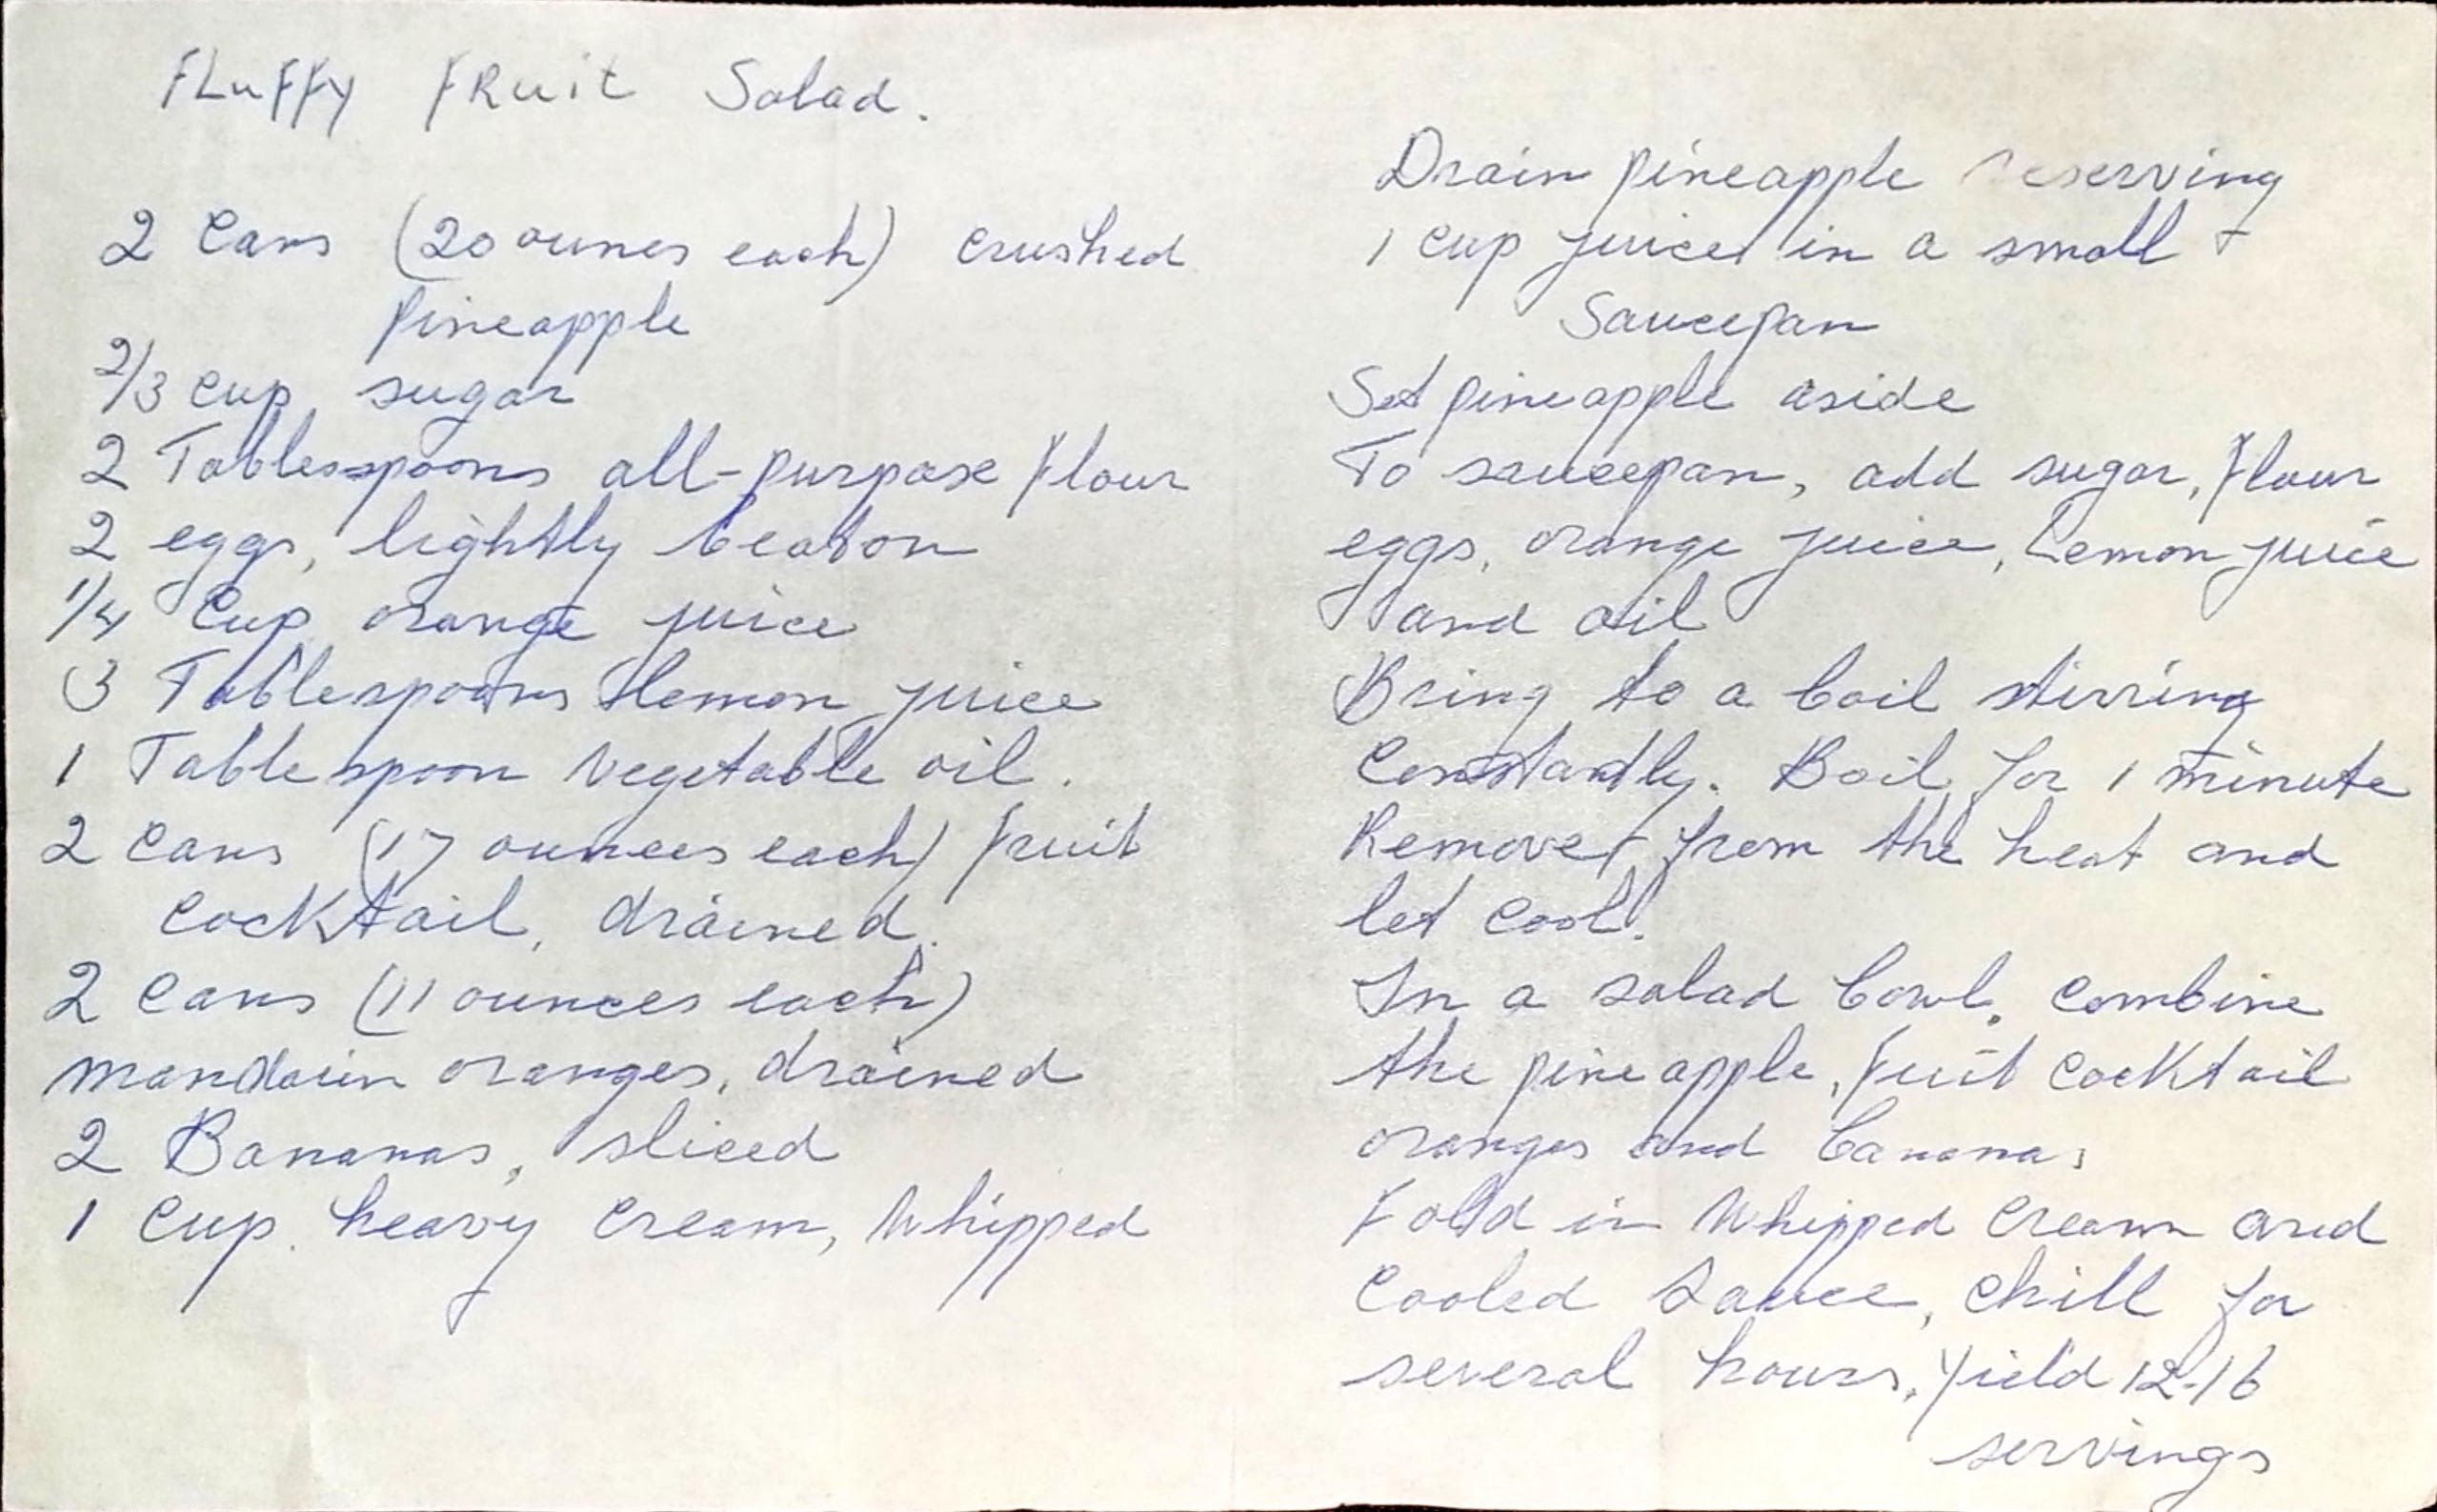 Fluffy Fruit Salad.
2 Cans (20 ounes each) crushed
pineapple
2/3 cup sugar
2 Tablespoons all-purpose flour
2 eggs, lightly beaton
1/4 Cup orange juice
3 Tablespoons lemon juice
1 Tablespoon vegetable oil.
2 cans (17 ounces each) fruit
cocktail, drained.
2 cans (11 ounces each)
mandarin oranges, drained
2 Bananas, sliced
1 Cup heavy cream, whipped
Drain pineapple reserving
1 cup juice in a small
Saucepan
Set pineapple aside
To saucepan, add sugar, flour
eggs, orange juice, Lemon juice
and oil
Bring to a boil stirring
Constantly. Boil for 1 minute
Remove from the heat and
let cool.
In a salad bowl, combine
the pineapple, fuit cocktail
oranges and bananas
Fold in whipped cream and
Cooled sauce, chill for
several hours, Yield 12-16
servings